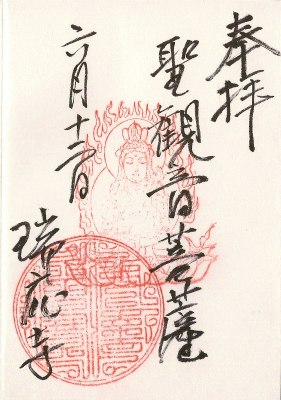 奉拝
聖観音菩薩
六月十二日
瑞応寺